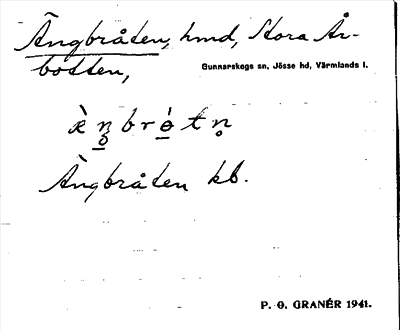 Ängbråten, hmd, Stora År-
botten,
Gunnarskogs sn, Jösse hd, Värmlands l.
Ängbråten kb.
P. O. GRANÉR 1941.